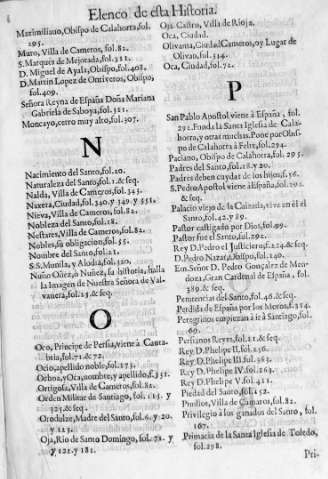 Elenco de esta Historia.
Maximiliano, Obispo de Calahorra, fol.
295.
Muro, Villa de Cameros, fol. 82.
S. Marques de Mejorada, fol. 322.
D. Miguel de Ayala, Obispo, fol. 408.
D. Martin Lopez de Ontiveros, Obispo,
fol. 409.
Señora Reyna de España Doña Mariana
Gabriela de Saboya, fol. 321.
Moncayo, cerro muy alto, fol. 307.
N
Nacimiento del Santo, fol. 20.
Naturaleza del Santo, fol. 1. & seq.
Nalda, Villa de Cameros, fol. 343.
Naxera, Ciudad, fol. 340. y 349. y 351.
Nieva, Villa de Cameros, fol. 82.
Nobleza del Santo, fol. 18.
Nestares, Villa de Cameros, fol. 82.
Nobles, su obligacion, fol. 55.
Nombre del Santo, fol. 21.
S.S. Nunila, y Alodia, fol. 320.
Nuño Oñez, ò Nuñez, su historia, halla
la Imagen de Nuestra Señora de Val-
vanera, fol. 25. & seq.
O
Oco, Principe de Persia, viene à Canta-
bria, fol. 71. & 72.
Ocio, apellido noble, fol. 373.
Ochoa, y Oca, nombre, y apellido, f. 351.
Ortigosa, Villa de Cameros, fol. 82.
Orden Militar de Santiago, fol. 115. y
323. & seq.
Orodulze, Madre del Santo, fol. 6. y 20.
y 123.
Oja, Rio de Santo Domingo, fol. 78. y
y 121. y 181.
Oja Castro, Villa de Rioja.
Oca, Ciudad.
Olivama, Ciudad Cameros, oy Lugar de
Olivan, fol. 514.
Oca, Ciudad, fol. 72.
P
San Pablo Apostol viene à España, fol.
291. Funda la Santa Iglesia de Cala-
horra, y otras muchas. Pone por Obis-
po de Calahorra à Felix, fol. 294.
Paciano, Obispo de Calahorra, fol. 295.
Padres del Santo, fol. 18. y 20.
Padres deben cuydar de los hijos, f. 56.
S. Pedro Apostol viene à España, fol. 291.
& seq.
Palacio viejo de la Calzada, vive en èl el
Santo, fol. 42. y 89.
Pastor castigado por Dios, fol. 99.
Pastor fue el Santo, fol. 292.
Rey D. Pedro el Justiciero, f. 214. & seq.
D. Pedro Nazar, Obispo, fol. 140.
Em. Señor D. Pedro Gonçalez de Men-
doza, Gran Cardenal de España, fol.
389. & seq.
Penitencias del Santo, fol. 46. & seq.
Perdida de España por los Moros, f. 214.
Peregrinos empiezan à ir à Santiago, fol.
69.
Persianos Reyes, fol. 21. & seq.
Rey D. Phelipe II. fol. 256.
Rey D. Phelipe III. fol. 383.
Rey D. Phelipe IV. fol. 263.
Rey D. Phelipe V. fol. 421.
Piedad del Santo, fol. 152.
Pinillos, Villa de Cameros, fol. 82.
Privilegio à los ganados del Santo, fol.
107.
Primacia de la Santa Iglesia de Toledo,
fol. 298.
Pri-